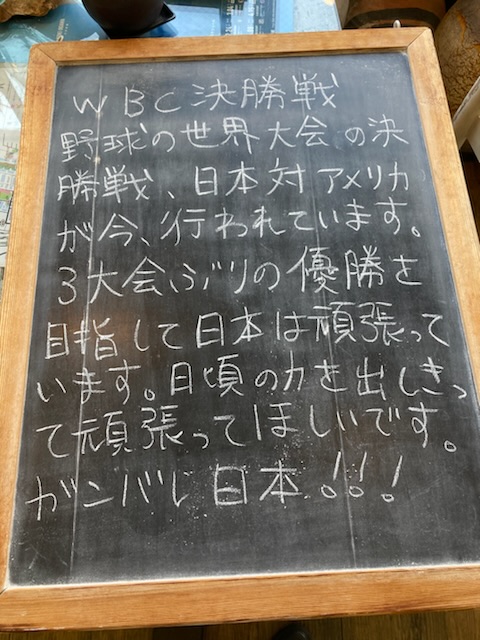 WBC決勝戦
野球の世界大会の決
勝戦、日本対アメリカ
が今、行われています。
3大会ぶりの優勝を
目指して日本は頑張って
います。日頃の力を出しきっ
て頑張ってほしいです。
ガンバレ日本!!!